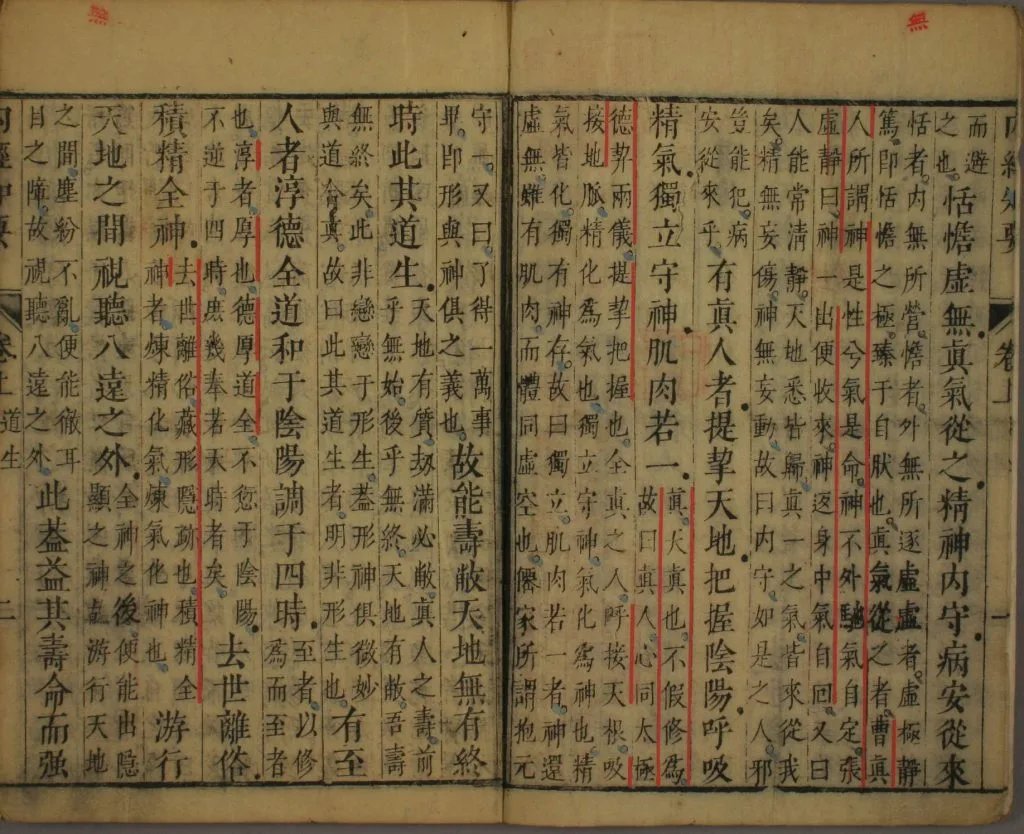 無
卷上
一
而避
之也
恬憺虛無真氣從之精神內守病安從來
恬者內無所營憺者外無所逐虛虛者虛極靜
篤即恬憺之極臻于自肰也真氣從之者曹真
人所謂神是性兮氣是命神不外馳氣自定張
虛靜曰神一出便收來神返身中氣自回又曰
人能常清靜天地悉皆歸真一之氣皆來從我
矣精無妄傷神無妄動故曰內守如是之人邪
豈能犯病
安從來乎
有真人者提挈天地把握陰陽呼吸
精氣獨立守神肌肉若一
真天真也不假修為
故曰真人心同太極
德契兩儀提挈把握也全真之人呼接天根吸
接地脈精化為氣也獨立守神氣化為神也精
氣皆化獨有神存故曰獨立肌肉若一者神還
虛無雖有肌肉而體同虛空也僊家所謂抱元
守一又曰了得一萬事
畢即形與神俱之義也
故能壽敝天地無有終
時此其道生
天地有質劫滿必敝真人之壽前
乎無始後乎無終天地有敝吾壽
無終矣此非戀戀于形生蓋形神俱微妙
與道合真故曰此其道生者明非形生也
有至
人者淳德全道和于陰陽調于四時
至者以修
為而至者
也淳者厚也德厚道全不愆于陰陽
不逆于四時庶幾奉若天時者矣
去世離俗
積精全神
去世離俗藏形隱跡也積精全
神者煉精化氣煉氣化神也
游行
天地之間視聽八遠之外
全神之後便能出隱
顯之神游行天地
之間塵紛不亂便能徹耳
目之障故視聽八遠之外
此蓋益其壽命而强
內經知要
卷上
道生
二